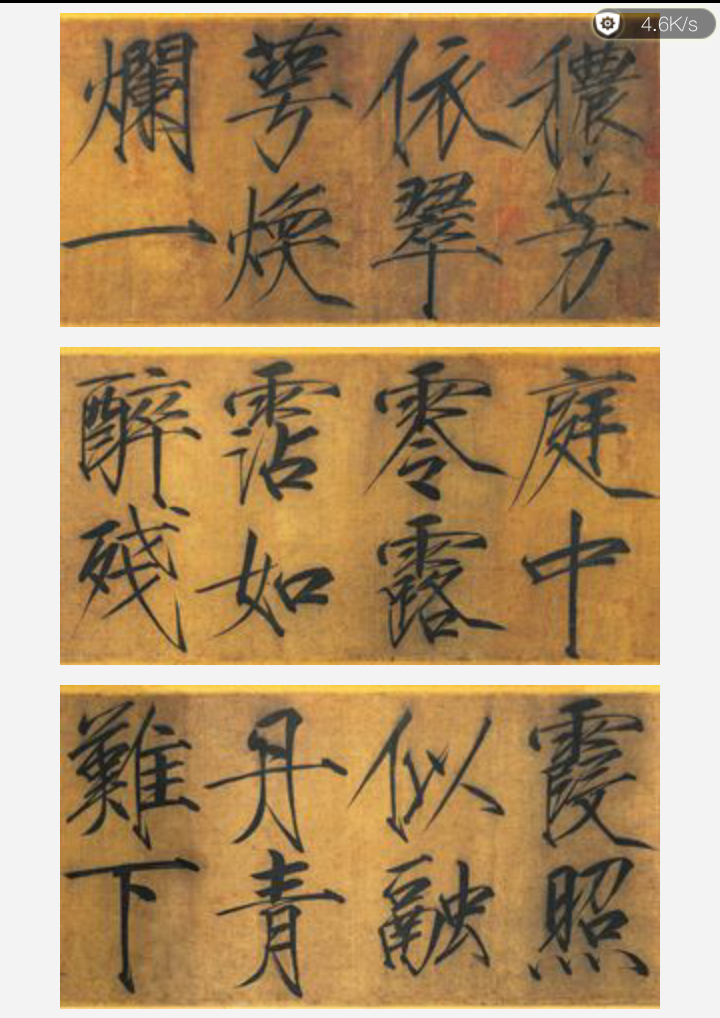 4.6K/s
穠芳
依翠
萼煥
爛一
庭中
零露
霑如
醉殘
霞照
似融
丹青
難下